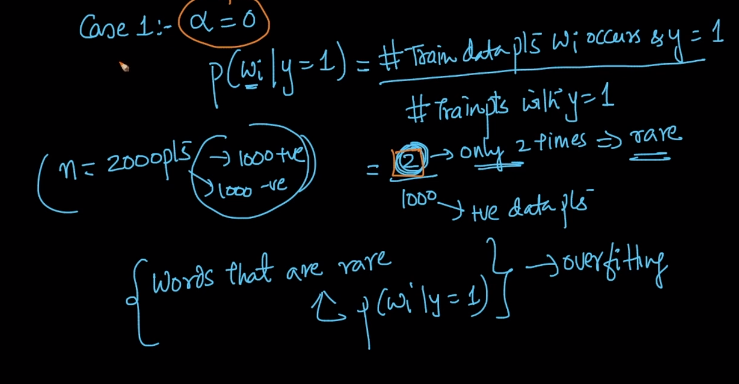 Case 1:- α = 0
P(wi | y = 1) = # Train data pts wi occurs & y = 1
# Train pts with y = 1
n = 2000 pts → 1000 +ve
→ 1000 -ve
= 2 → only 2 times ⇒ rare
1000 → +ve data pts
{ Words that are rare } → overfitting
↑ P(wi | y = 1)